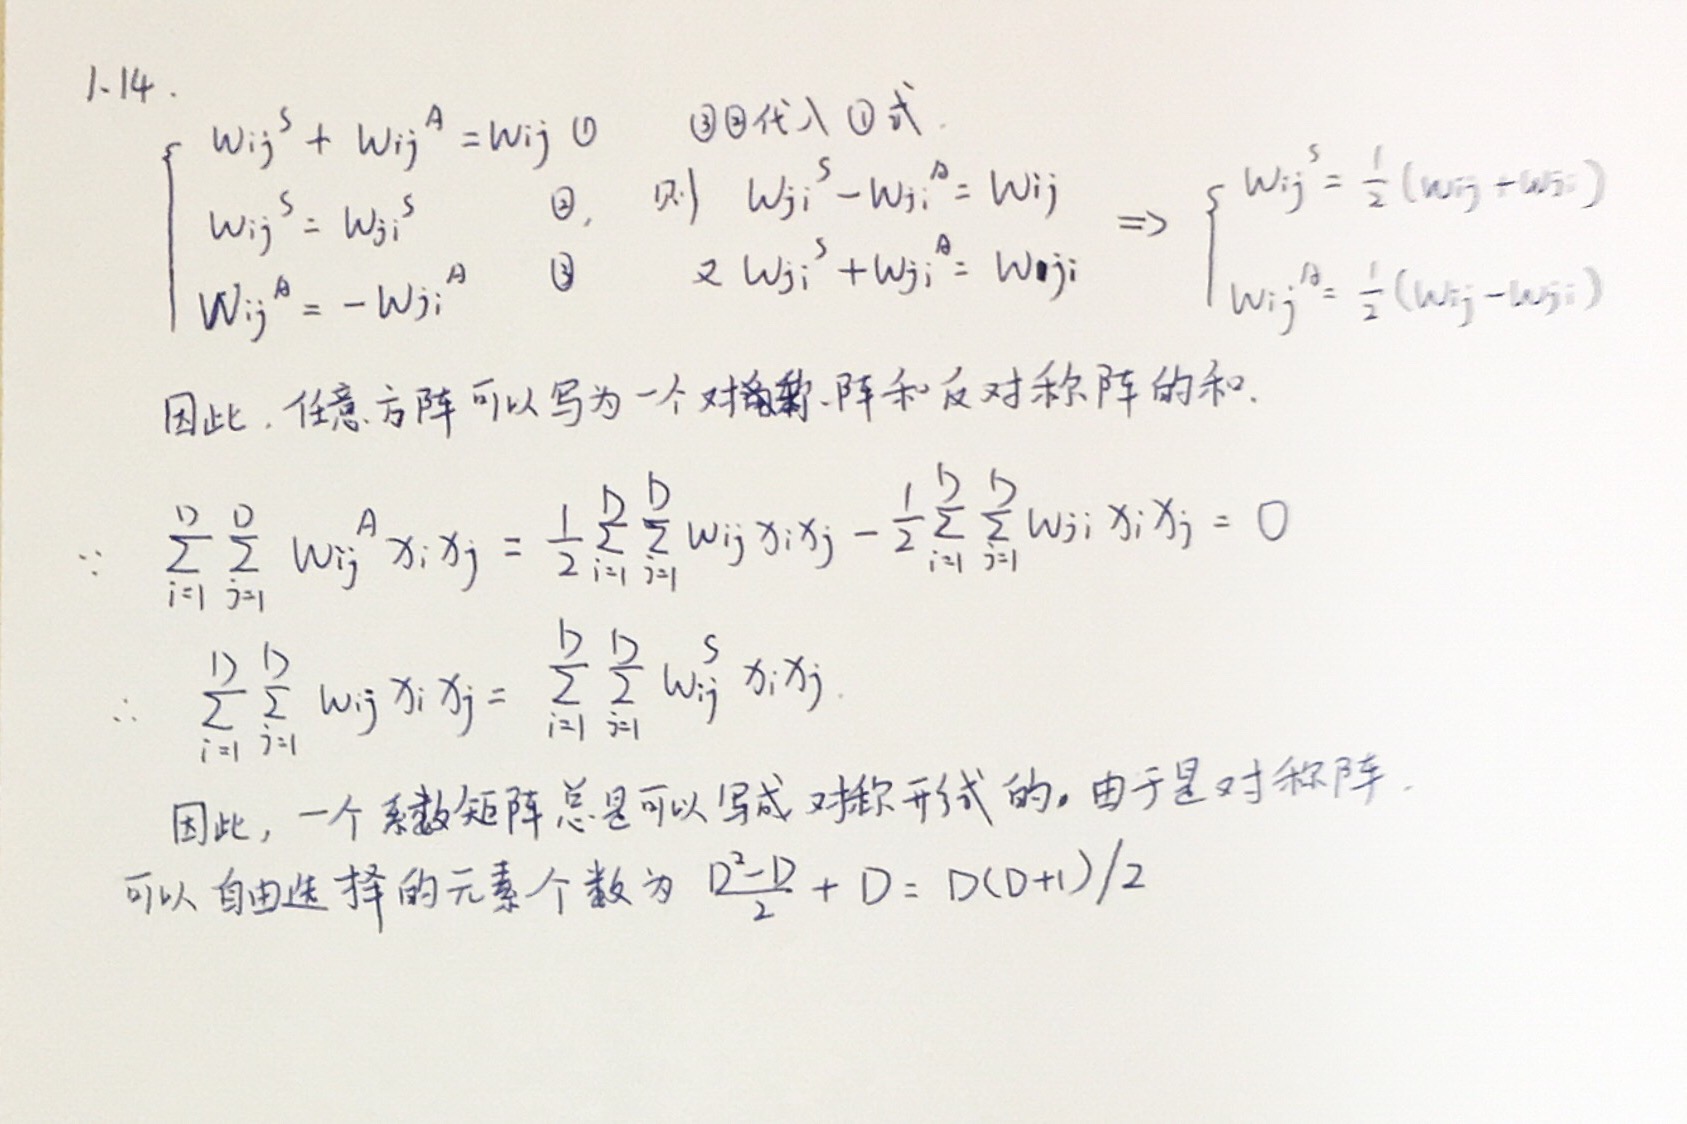 1.14.
w_{ij}^S + w_{ij}^A = w_{ij} ① ③②代入①式.
w_{ij}^S = w_{ji}^S ②, 则 w_{ji}^S - w_{ji}^A = w_{ij} ⇒ { w_{ij}^S = \frac{1}{2}(w_{ij} + w_{ji})
w_{ij}^A = -w_{ji}^A ③ 又 w_{ji}^S + w_{ji}^A = w_{ji} w_{ij}^A = \frac{1}{2}(w_{ij} - w_{ji})
因此.任意方阵可以写为一个对称阵和反对称阵的和.
∵ \sum_{i=1}^{D} \sum_{j=1}^{D} w_{ij}^A x_i x_j = \frac{1}{2} \sum_{i=1}^{D} \sum_{j=1}^{D} w_{ij} x_i x_j - \frac{1}{2} \sum_{i=1}^{D} \sum_{j=1}^{D} w_{ji} x_i x_j = 0
∴ \sum_{i=1}^{D} \sum_{j=1}^{D} w_{ij} x_i x_j = \sum_{i=1}^{D} \sum_{j=1}^{D} w_{ij}^S x_i x_j.
因此,一个系数矩阵总是可以写成对称形式的。由于是对称阵.
可以自由选择的元素个数为 \frac{D^2-D}{2} + D = D(D+1)/2